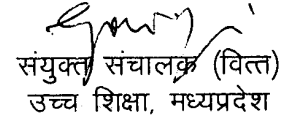 संयुक्त संचालक (वित्त)
उच्च शिक्षा, मध्यप्रदेश